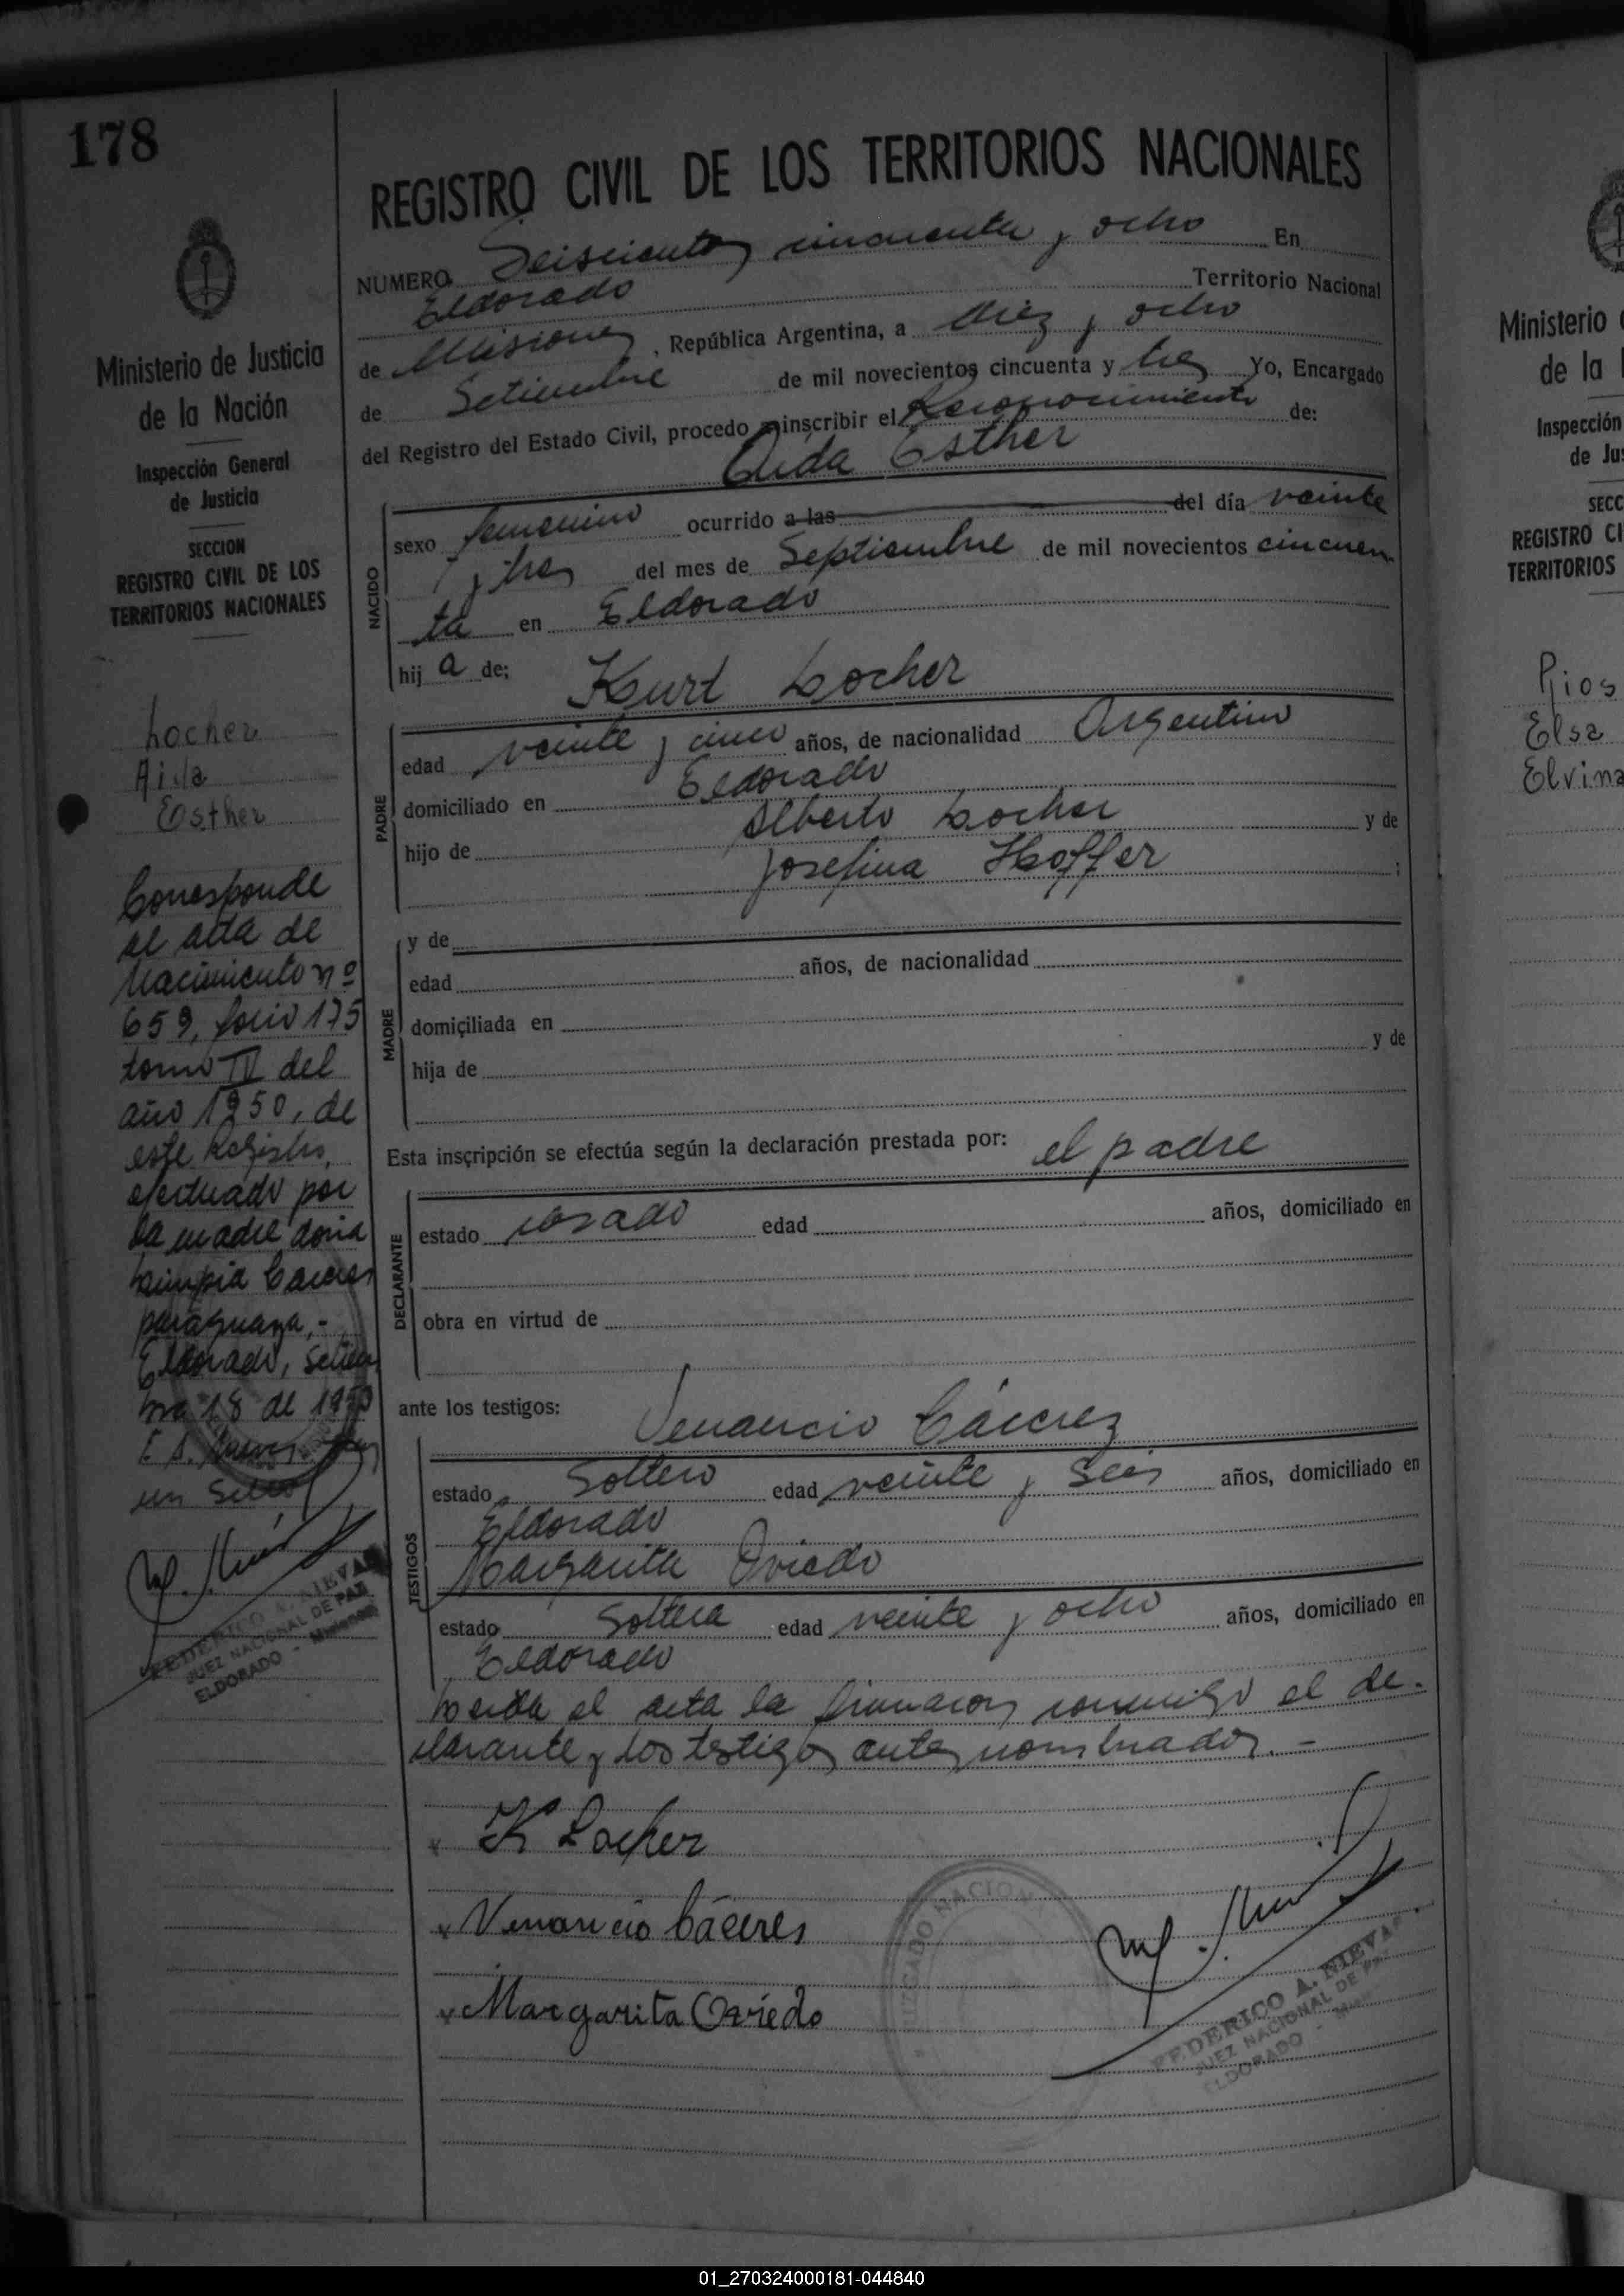 178
Ministerio de Justicia
de la Nación
Inspección General
de Justicia
SECCION
REGISTRO CIVIL DE LOS
TERRITORIOS NACIONALES
Locher
Aida
Esther
Corresponde
al acta de
Nacimiento nº
659, folio 175
tomo IV del
año 1950, de
este Registro,
efectuado por
la madre doña
Limpia Cáceres
paraguaya,-
Eldorado, Setiem
bre 18 de 1953
un Sello
FEDERICO A. NIEVAS
JUEZ NACIONAL DE PAZ
ELDORADO - Misiones
REGISTRO CIVIL DE LOS TERRITORIOS NACIONALES
NUMERO Seiscientos cincuenta y ocho En
Eldorado Territorio Nacional
de Misiones, República Argentina, a diez y ocho
de Setiembre de mil novecientos cincuenta y tres Yo, Encargado
del Registro del Estado Civil, procedo a inscribir el Reconocimiento de:
Aida Esther
NACIDO
sexo femenino ocurrido a las del día veinte
y tres del mes de Septiembre de mil novecientos cincuen
ta en Eldorado
hij a de; Kurt Locher
PADRE
edad veinte y cinco años, de nacionalidad Argentino
domiciliado en Eldorado
hijo de Alberto Locher y de
Josefina Hoffer ;
MADRE
y de
edad años, de nacionalidad
domiciliada en
hija de y de
Esta inscripción se efectúa según la declaración prestada por: el padre
DECLARANTE
estado casado edad años, domiciliado en
obra en virtud de
ante los testigos: Venancio Cáceres
TESTIGOS
estado Soltero edad veinte y seis años, domiciliado en
Eldorado
Margarita Oviedo
estado Soltera edad veinte y ocho años, domiciliado en
Eldorado
Leida el acta la firmaron conmigo el de-
clarante y los testigos antes nombrados.-
K Locher
Venancio Cáceres
Margarita Oviedo
JUZGADO NACIONA
FEDERICO A. NIEVAS
JUEZ NACIONAL DE PAZ
ELDORADO - Mis
Ministerio
de la
Inspección
de Jus
SECC
REGISTRO CI
TERRITORIOS
Rios
Elsa
Elvina
01_270324000181-044840